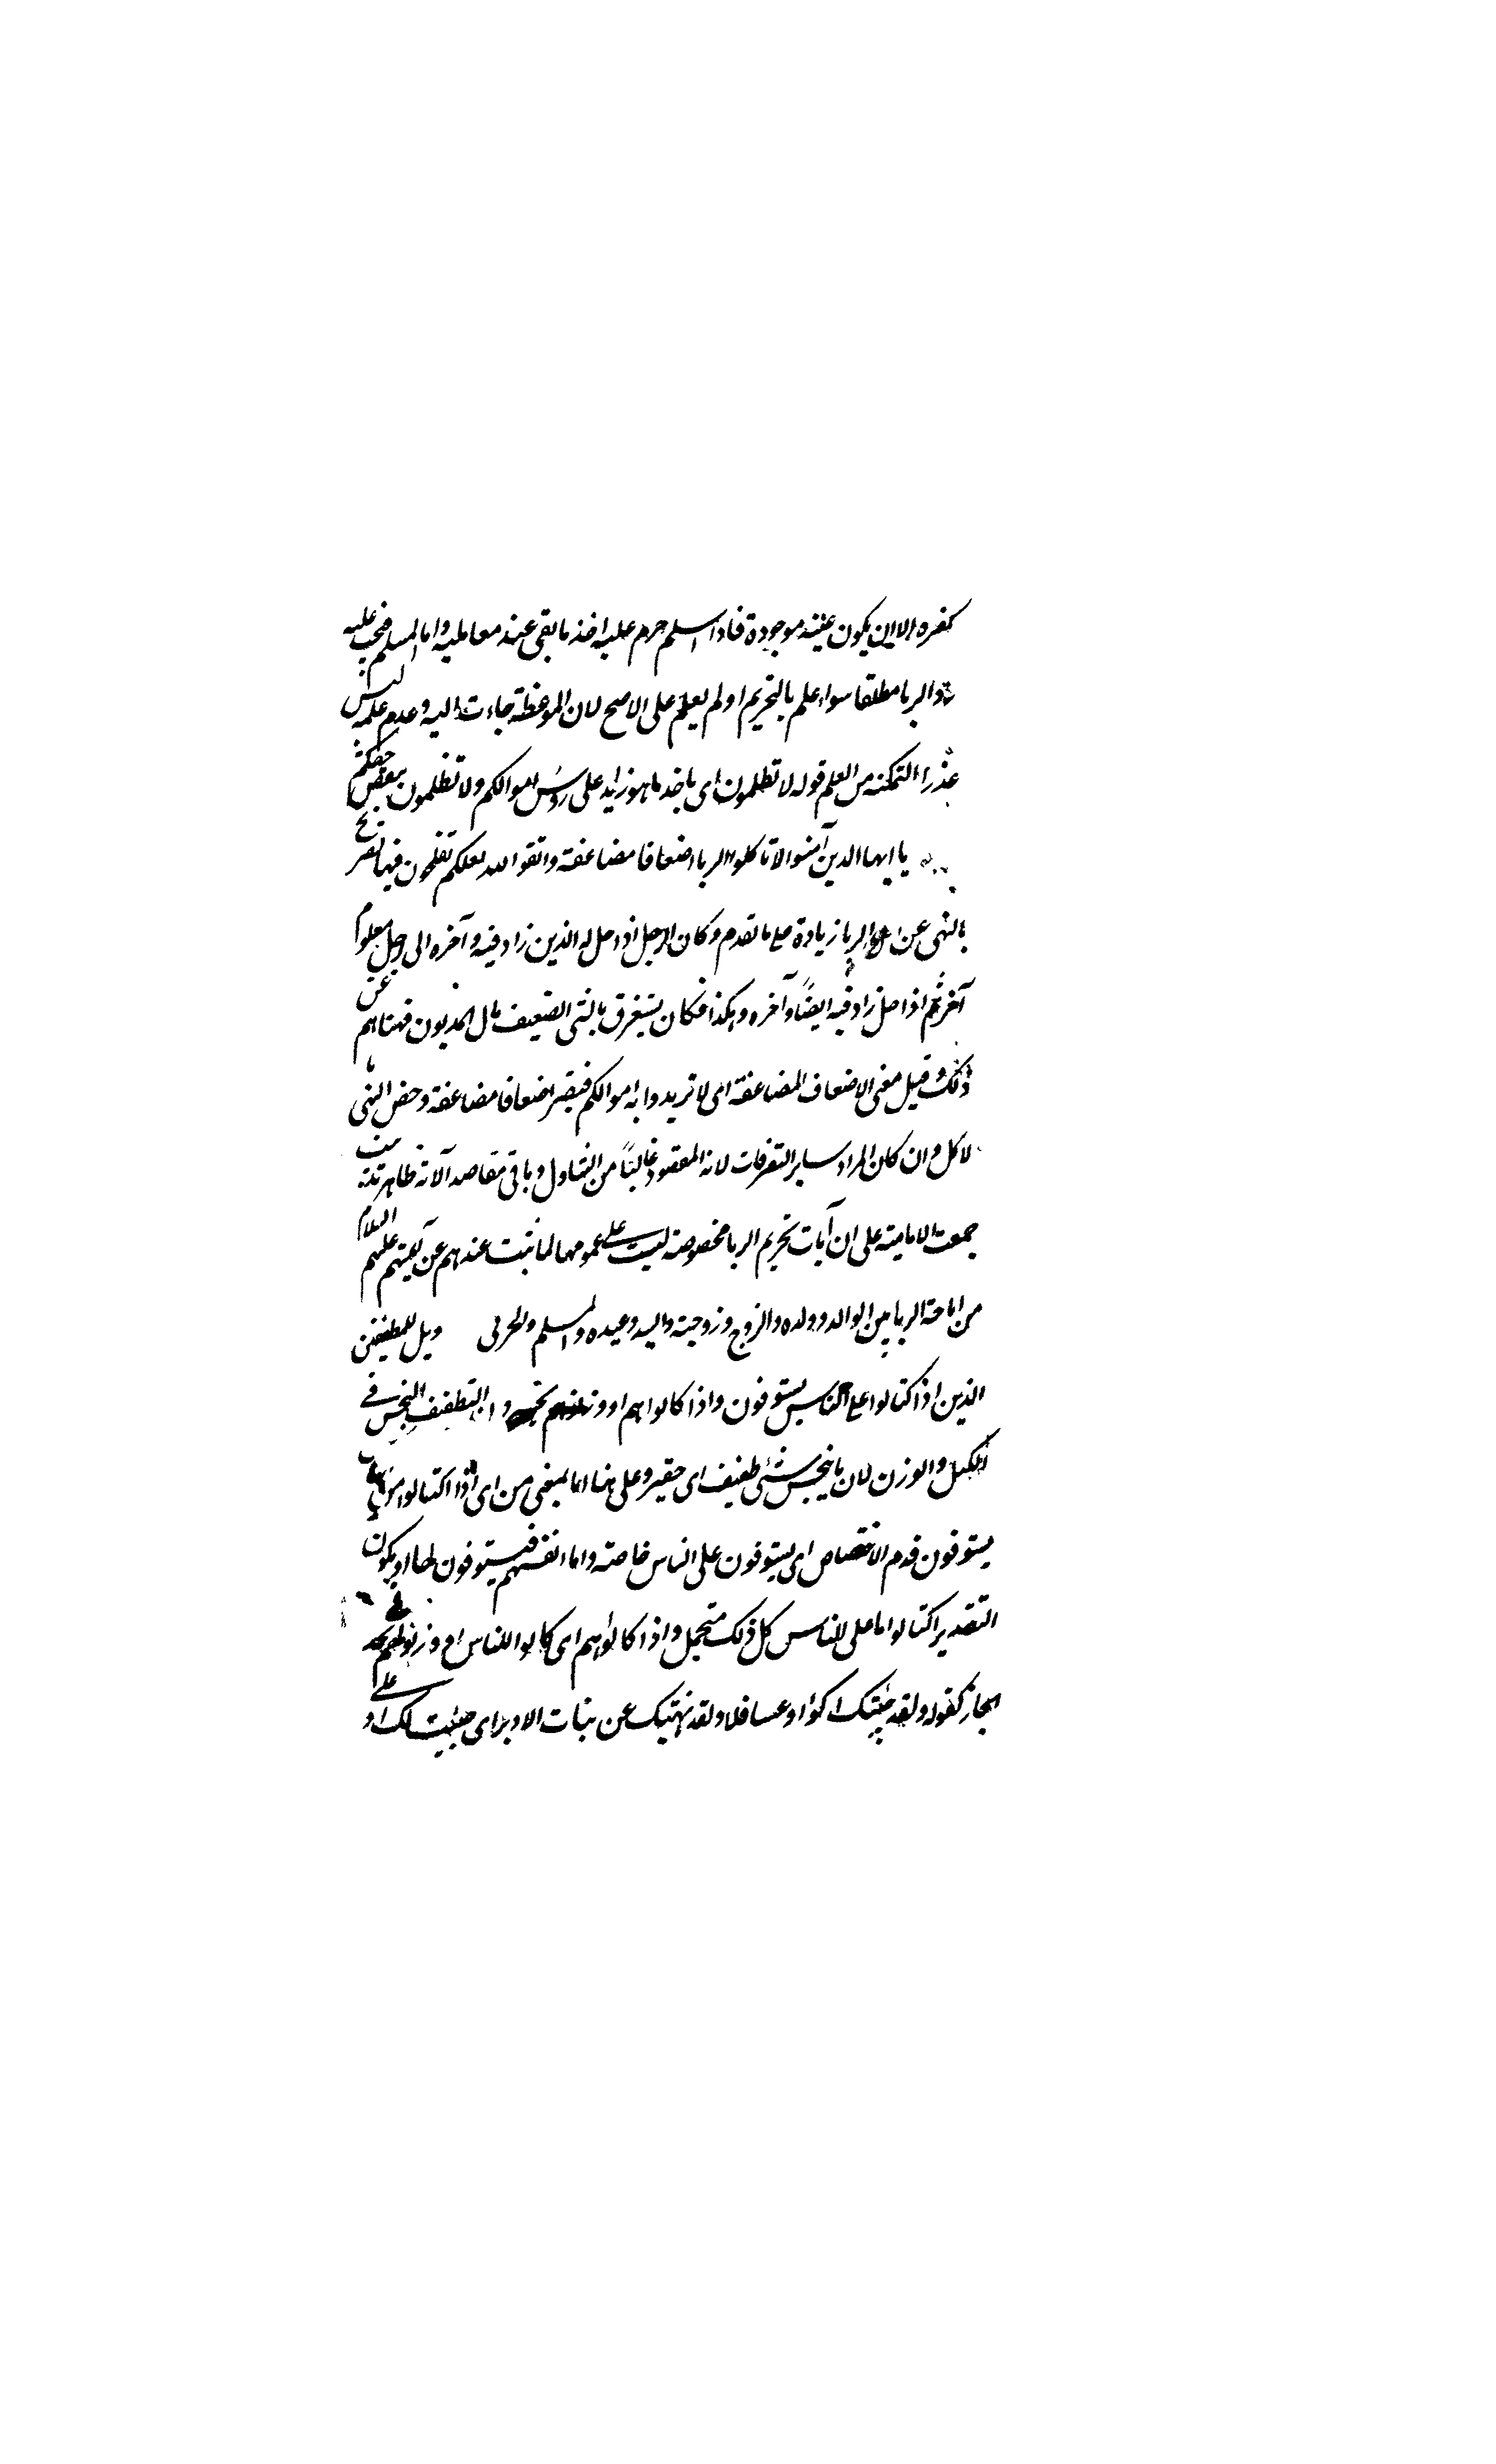 كفره الا ان يكون عينه موجودة فاذا اسلم حرم عليه اخذ ما بقى عند معامليه واما المسلم فيجب عليه
رد الربا مطلقا سواء علم بالتحريم او لم يعلم على الاصح لان الموعظة جاءت اليه وعدم علمه ليس
عذرا لتمكنه من العلم قوله لا تظلمون اى باخذ ما هو زايد على رؤس اموالكم ولا تظلمون ببعض حقكم
يا ايها الذين آمنوا لا تاكلوا الربا اضعافا مضاعفة واتقوا الله لعلكم تفلحون فيها تصريح
بالنهى عن الربا زيادة على ما تقدم وكان الرجل اذا حل له الدين زاد فيه وآخره الى اجل معلوم
آخر ثم اذا حل زاد فيه ايضًا وآخره وهكذا فكان يستغرق بالشى الضعيف مال المديون فنهاهم عن
ذلك وقيل معنى الاضعاف المضاعفة اى لا تزيدوا به اموالكم فيصير اضعافا مضاعفة وخص النهى با
لاكل وان كان المراد ساير التصرفات لانه المقصود غالبًا من التناول وباقى مقاصد الآية ظاهر تذنيب
جمعت الامامية على ان آيات تحريم الربا مخصوصة ليست على عمومها لما ثبت عندهم عن آئمتهم عليهم السلام
من اباحة الربا بين الوالد وولده والزوج وزوجته والسيد وعبده والمسلم والحربى ويل للمطففين
الذين اذا كتالوا على الناس يستوفون واذا كالوا هم او وزنوهم يخسرون التطفيف البخس فى
الكيل والوزن لان ما يبخس شئى طفيف اى حقير وعلى هنا اما بمعنى من اى اذا اكتالوا من الناس
يستوفون قدم الاختصاص اى يستوفون على الناس خاصة واما انفسهم فيستوفون لها او يكون
التقدير اكتالوا ما على الناس كل ذلك محتمل واذا كالوا هم اى كالوا للناس او وزنوا لهم فى
المجاز كقوله ولقد جنيتك اكمؤا وعساقلا ولقد نهيتك عن بنات الاوبر اى جنيت لك او على